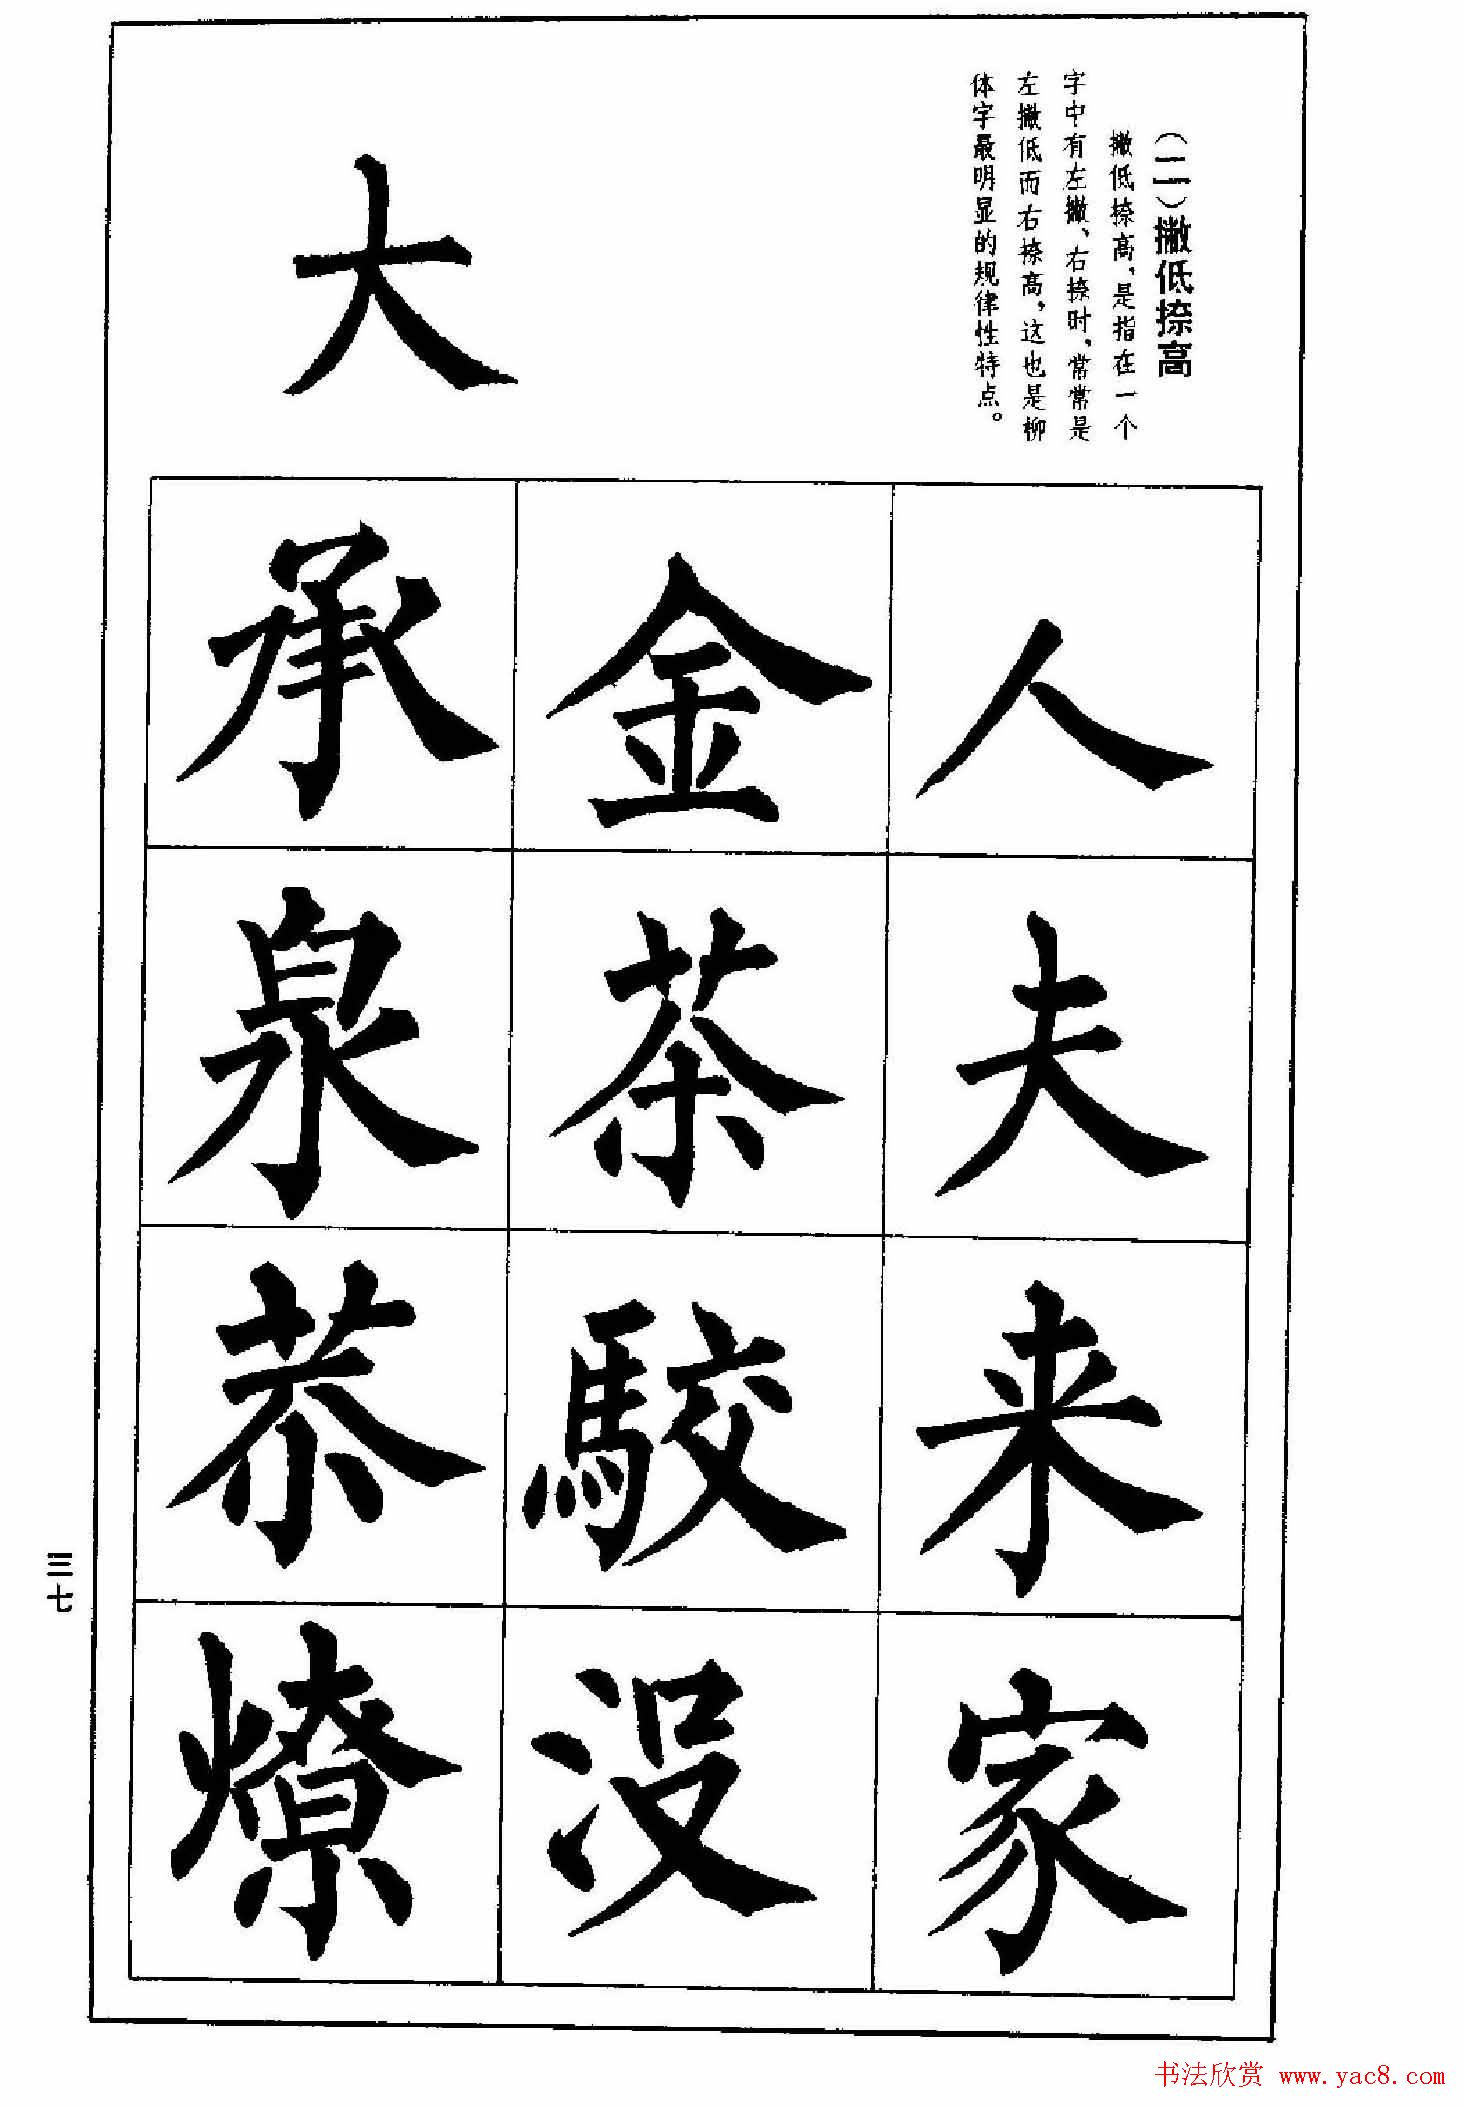 （二）撇低捺高
撇低捺高，是指在一个
字中有左撇、右捺时，常常是
左撇低而右捺高，这也是柳
体字最明显的规律性特点。
大
人夫来家
金茶駮没
承泉恭燎
三七
书法欣赏 www.yac8.com